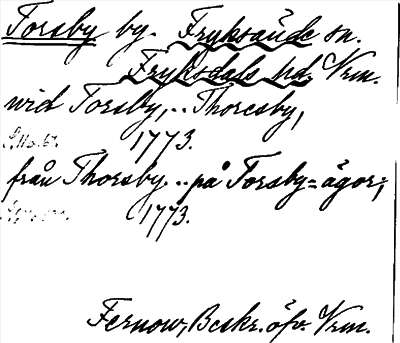 Torsby by. Fryksände sn.
Fryksdals hd, Vrm.
wid Torsby,.. Thoresby,
1773.
från Thorsby... på Torsby=ägor;
1773.
Fernow, Beskr. öfv. Vrm.